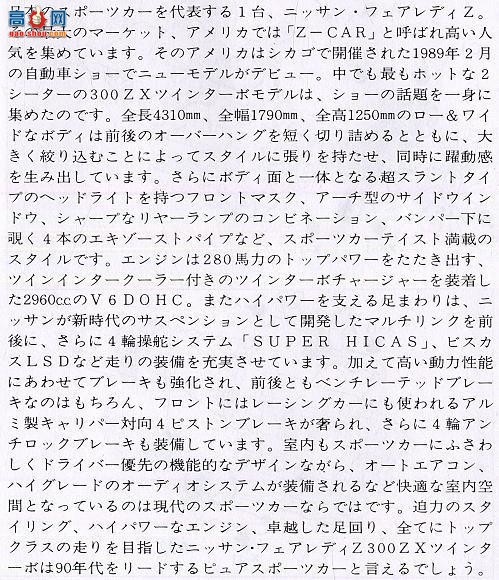 高高
gao-shou.com
スポーツカーを代表する１台、ニッサン・フェアレディＺ。
のマーケット、アメリカでは「Ｚ－ＣＡＲ」と呼ばれ高い人
気を集めています。そのアメリカはシカゴで開催された1989年２月
の自動車ショーでニューモデルがデビュー。中でも最もホットな２
シーターの300ＺＸツインターボモデルは、ショーの話題を一身に
集めたのです。全長4310㎜、全幅1790㎜、全高1250㎜のロー＆ワイ
ドなボディは前後のオーバーハングを短く切り詰めるとともに、大
きく絞り込むことによってスタイルに張りを持たせ、同時に躍動感
を生み出しています。さらにボディ面と一体となる超スラントタイ
プのヘッドライトを持つフロントマスク、アーチ型のサイドウイン
ドウ、シャープなリヤーランプのコンビネーション、バンパー下に
覗く４本のエキゾーストパイプなど、スポーツカーテイスト満載の
スタイルです。エンジンは280馬力のトップパワーをたたき出す、
ツインインタークーラー付きのツインターボチャージャーを装着し
た2960㏄のＶ６ＤＯＨＣ。またハイパワーを支える足まわりは、ニ
ッサンが新時代のサスペンションとして開発したマルチリンクを前
後に、さらに４輪操舵システム「ＳＵＰＥＲ　ＨＩＣＡＳ」、ビスカ
スＬＳＤなど走りの装備を充実させています。加えて高い動力性能
にあわせてブレーキも強化され、前後ともベンチレーテッドブレー
キなのはもちろん、フロントにはレーシングカーにも使われるアル
ミ製キャリパー対向４ピストンブレーキが奢られ、さらに４輪アン
チロックブレーキも装備しています。室内もスポーツカーにふさわ
しくドライバー優先の機能的なデザインながら、オートエアコン、
ハイグレードのオーディオシステムが装備されるなど快適な室内空
間となっているのは現代のスポーツカーならではです。迫力のスタ
イリング、ハイパワーなエンジン、卓越した足回り、全てにトップ
クラスの走りを目指したニッサン・フェアレディＺ300ＺＸツインタ
ーボは90年代をリードするピュアスポーツカーと言えるでしょう。